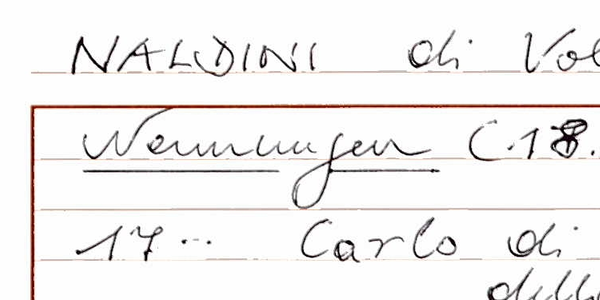 NALDINI di Vol
Nennungen C.18.
17.. Carlo di